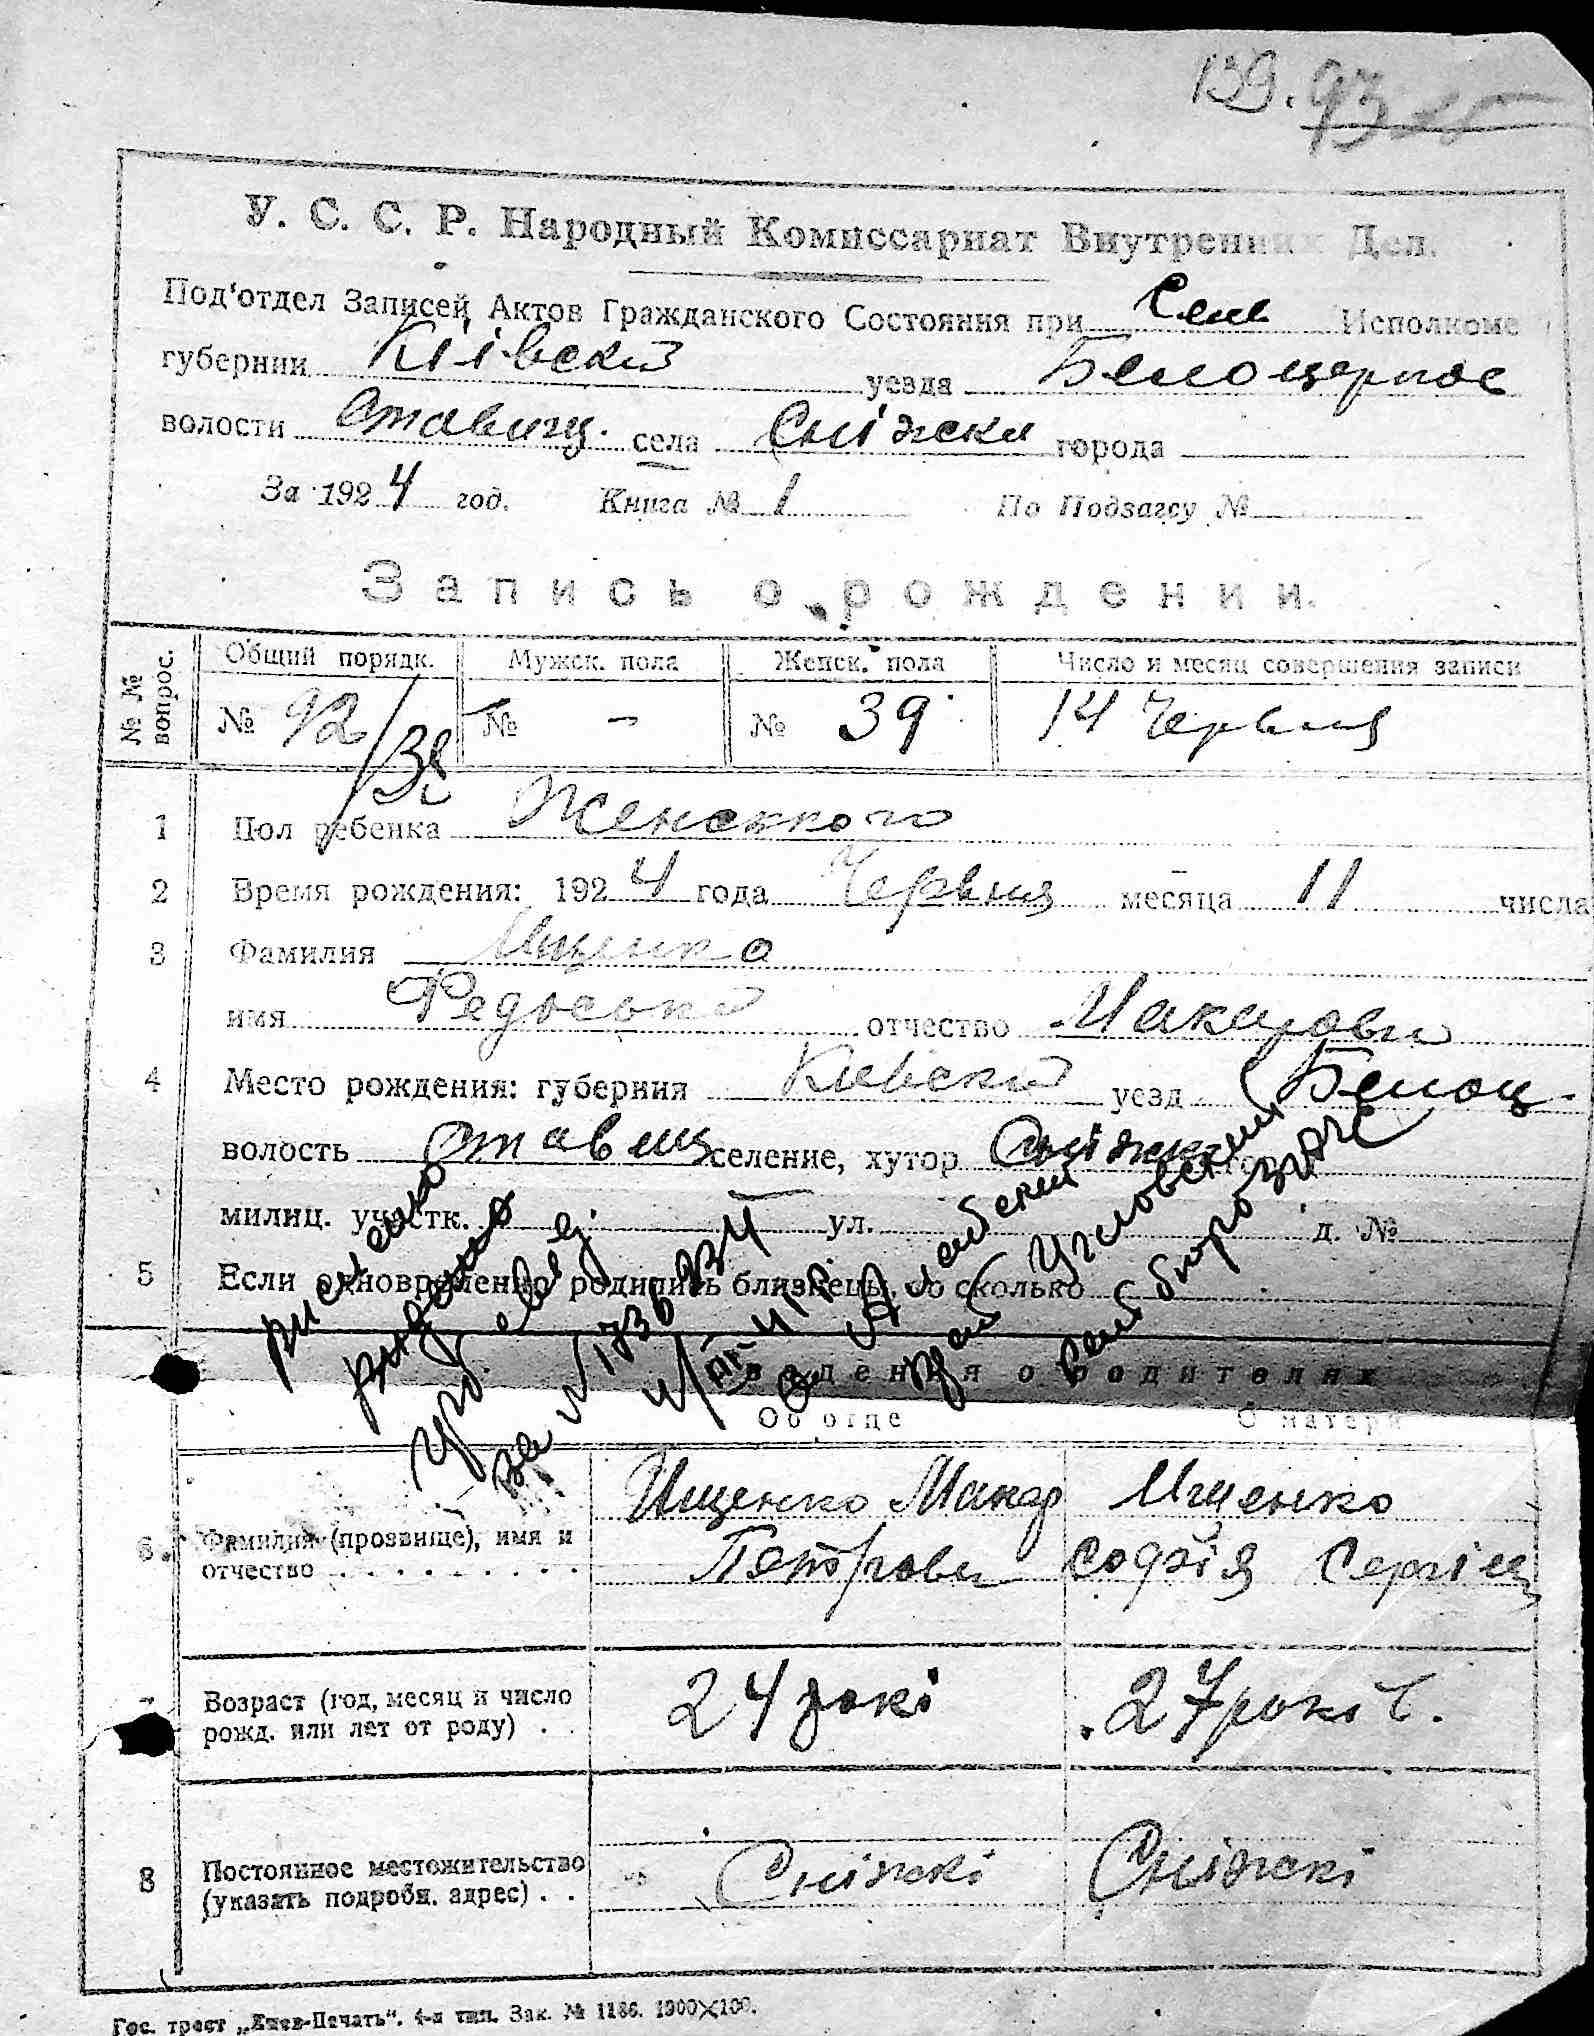 139. 93
У. С. С. Р. Народный Комиссариат Внутренних Дел.
Под'отдел Записей Актов Гражданского Состояния при Сель Исполкоме
губернии Київский уезда Белоцерков
волости Ставищ. села Сніжки города
За 1924 год. Книга № 1 По Подзагсу №
Запись о рождении.
№ № вопрос. Общий порядк. Мужск. пола Женск. пола Число и месяц совершения записи
№ 92 № - № 39 14 Червня
1 Пол ребенка Женського
2 Время рождения: 1924 года Червня месяца 11 числа
3 Фамилия Ищенко
имя Федоська отчество Макарови
4 Место рождения: губерния Киевский уезд Белоц.
волость Ставищ селение, хутор Сніжки гор.
милиц. участк. ул. д. №
5 Если одновременно родились близнецы, то сколько
Сведения о родителях
Об отце О матери
6. Фамилия (прозвище), имя и отчество Ищенко Макар Петрови Ищенко Софія Сергіец
7 Возраст (год, месяц и число рожд. или лет от роду) 24 рокі 27 років.
8 Постоянное местожительство (указать подробн. адрес) Сніжкі Сніжкі
Гос. трест „Киев-Печать“. 4-я тип. Зак. № 1186. 1000×100.